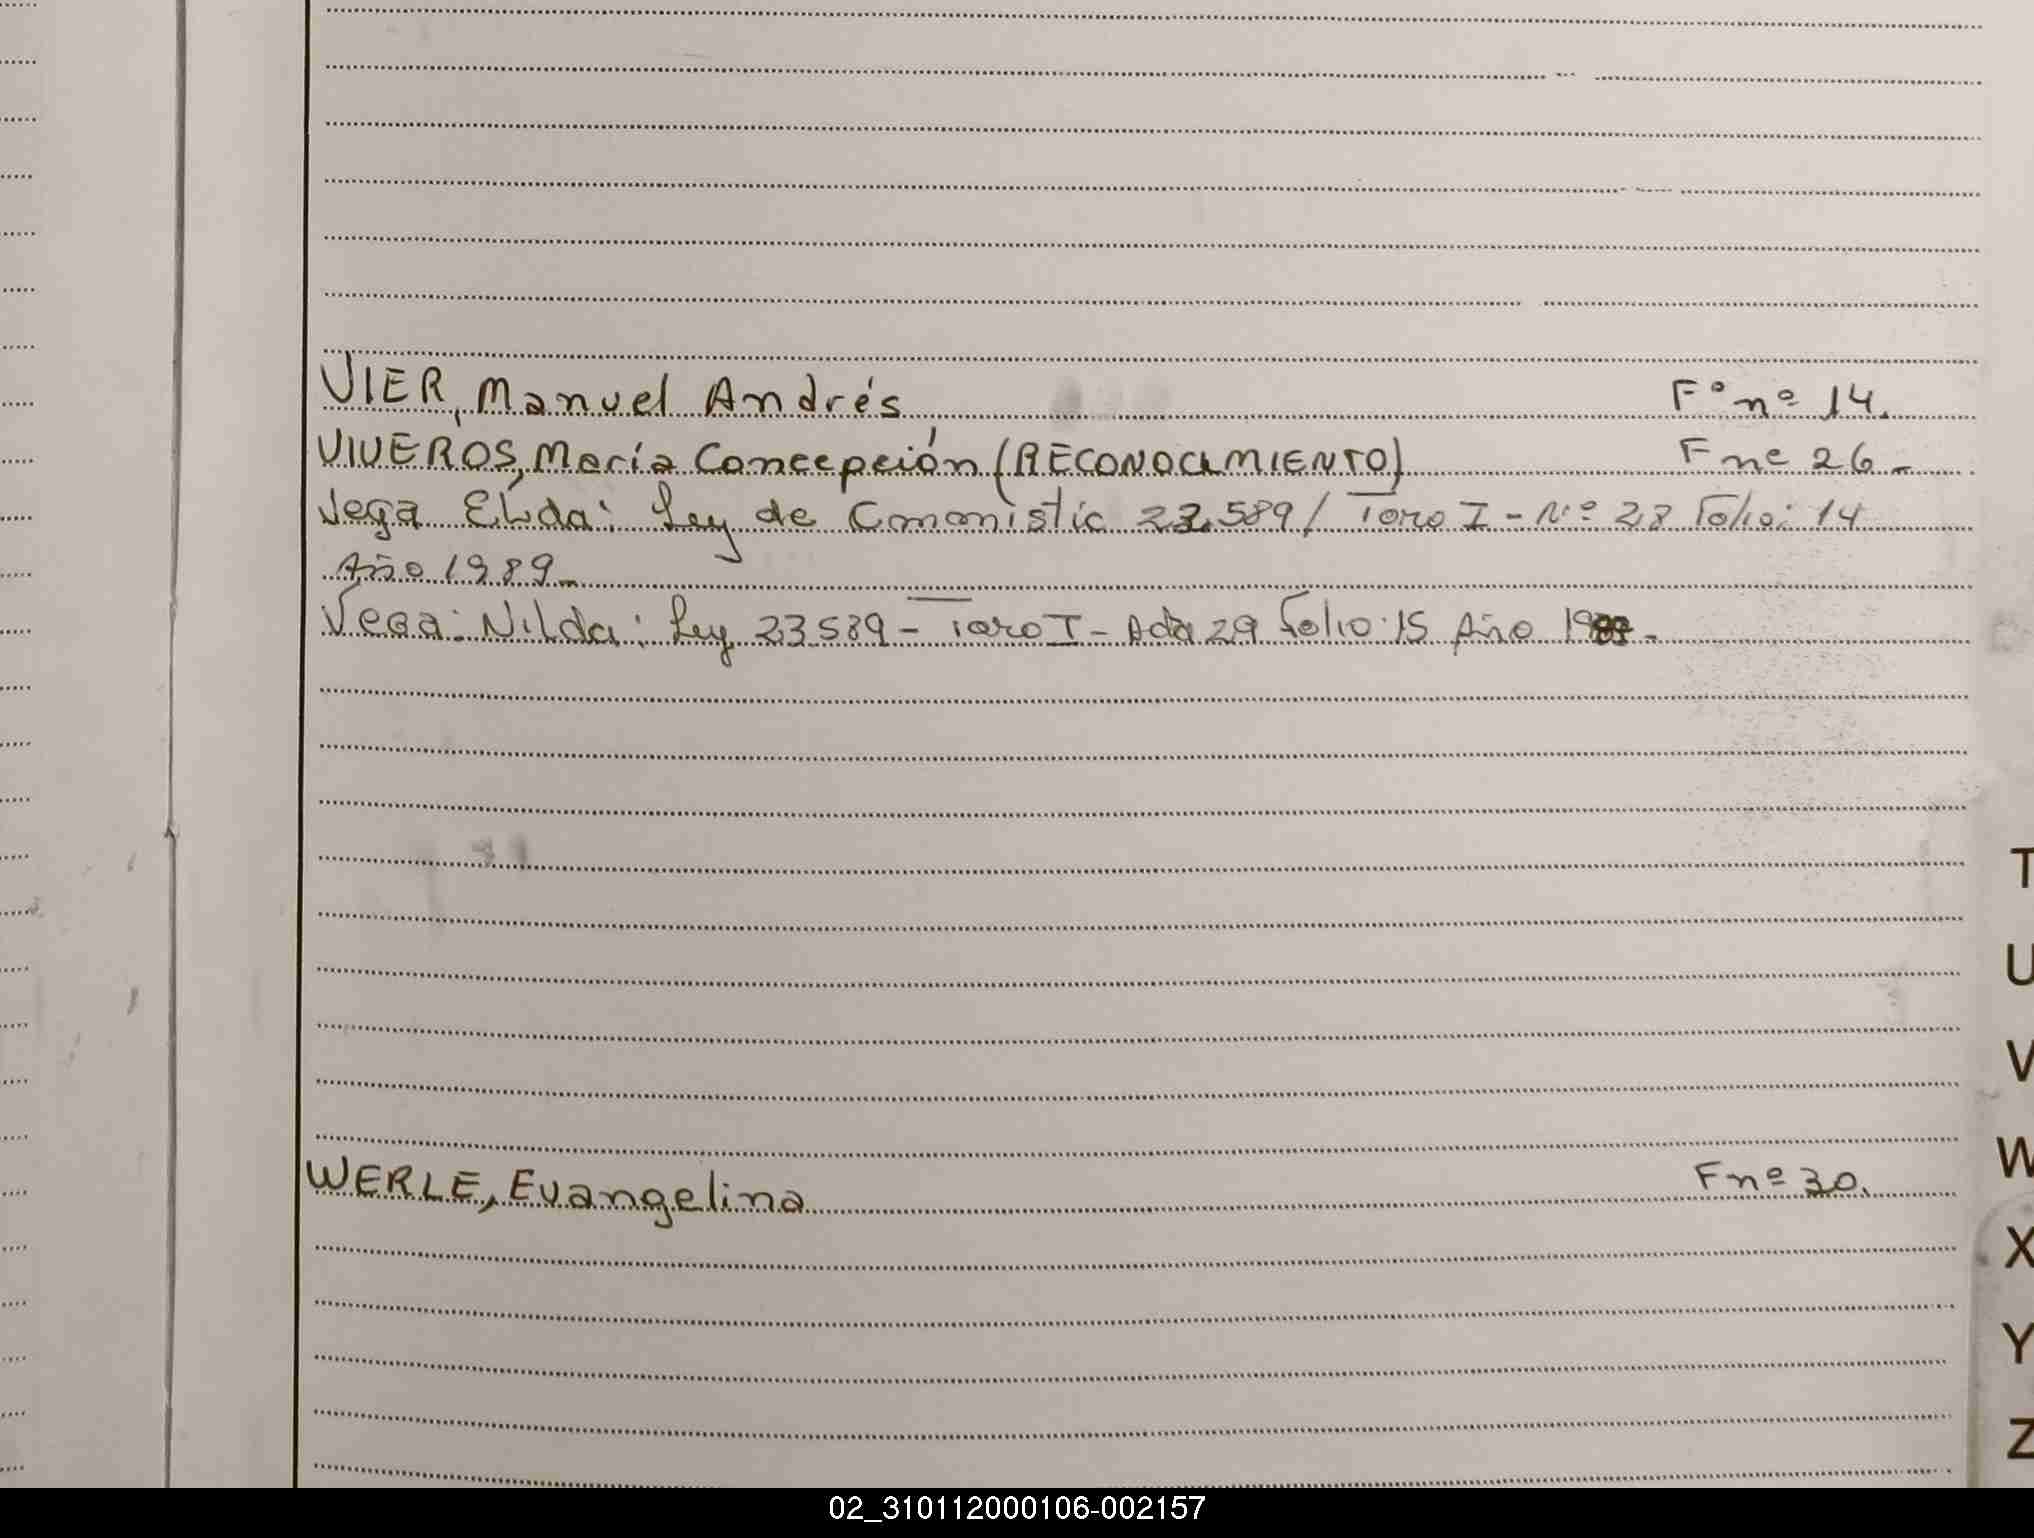 VIER, Manuel Andrés F° nº 14.
VIVEROS, María Concepción (RECONOCIMIENTO) F nº 26 -
Vega Elida: Ley de 23.589 / Tomo I - Nº 28 Folio: 14
Año 1989 -
Vega: Nilda: Ley 23589 - Tomo I - Acta 29 Folio: 15 Año 1989 -
WERLE, Evangelina F nº 30.
T
U
V
W
X
Y
Z
02_310112000106-002157